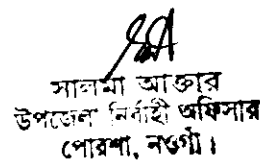 সালমা আক্তার
উপজেলা নির্বাহী অফিসার
পোরশা, নওগাঁ।